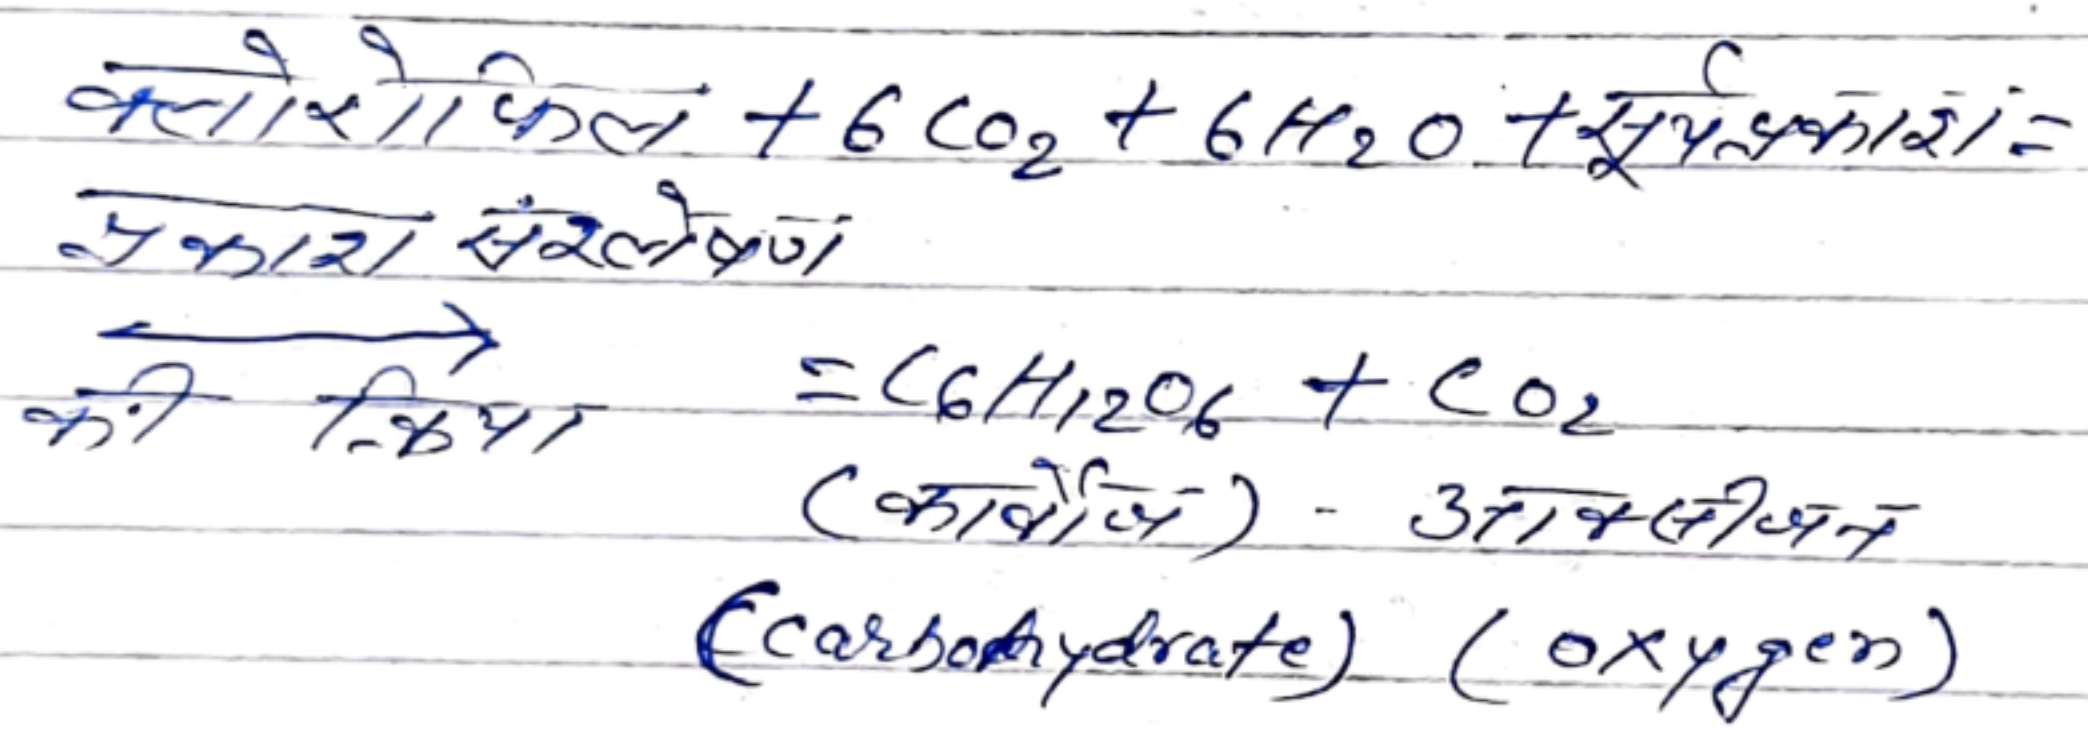 क्लोरोफिल + 6 CO₂ + 6 H₂O + सूर्य प्रकाश =
प्रकाश संश्लेषण
⟷
की क्रिया = C6H12O6 + CO₂
(कार्बोज) - आक्सीजन
(carbohydrate) (oxygen)